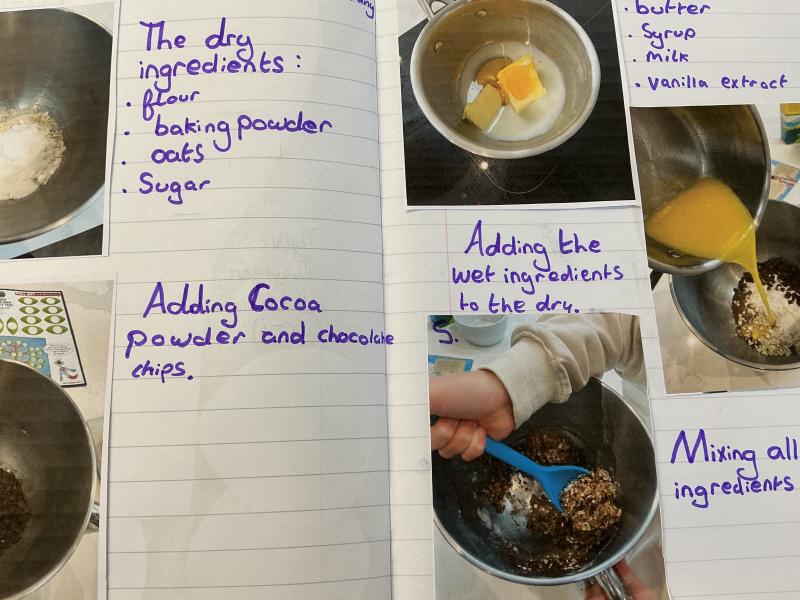 The dry
ingredients :
. flour
. baking powder
. oats
. Sugar
Adding Cocoa
powder and chocolate
chips.
. butter
. Syrup
. Milk
. vanilla extract
Adding the
wet ingredients
to the dry.
5.
Mixing all
ingredients